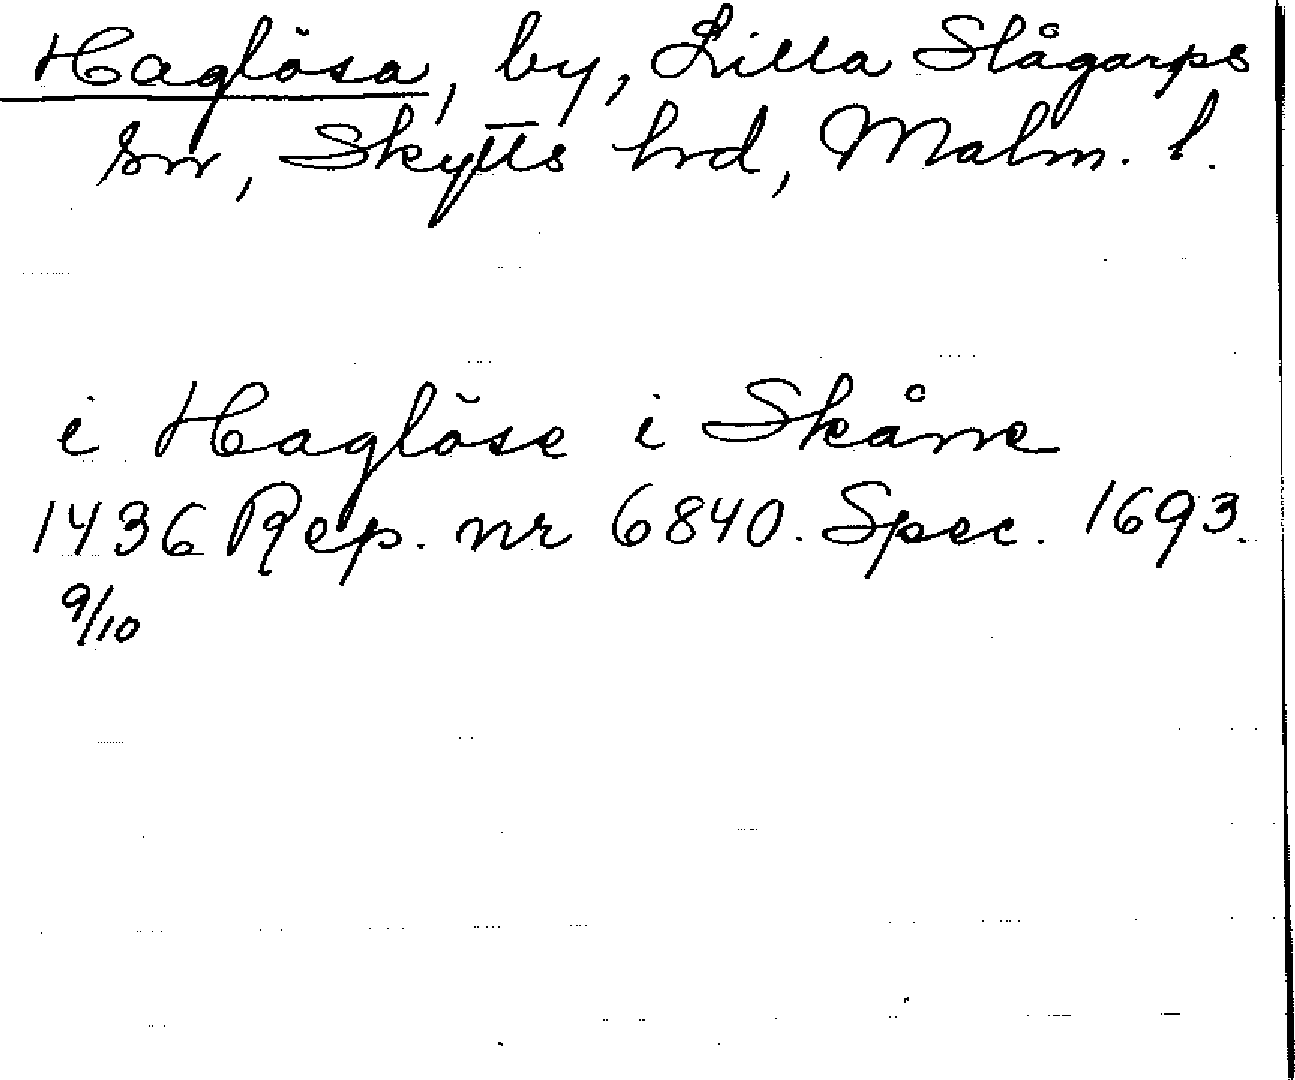 Haglösa, by, Lilla Slågarps
sn, Skytts hrd, Malm. l.
i Haglöse i Skåne
1436 Rep. nr 6840. Spec. 1693.
9/10